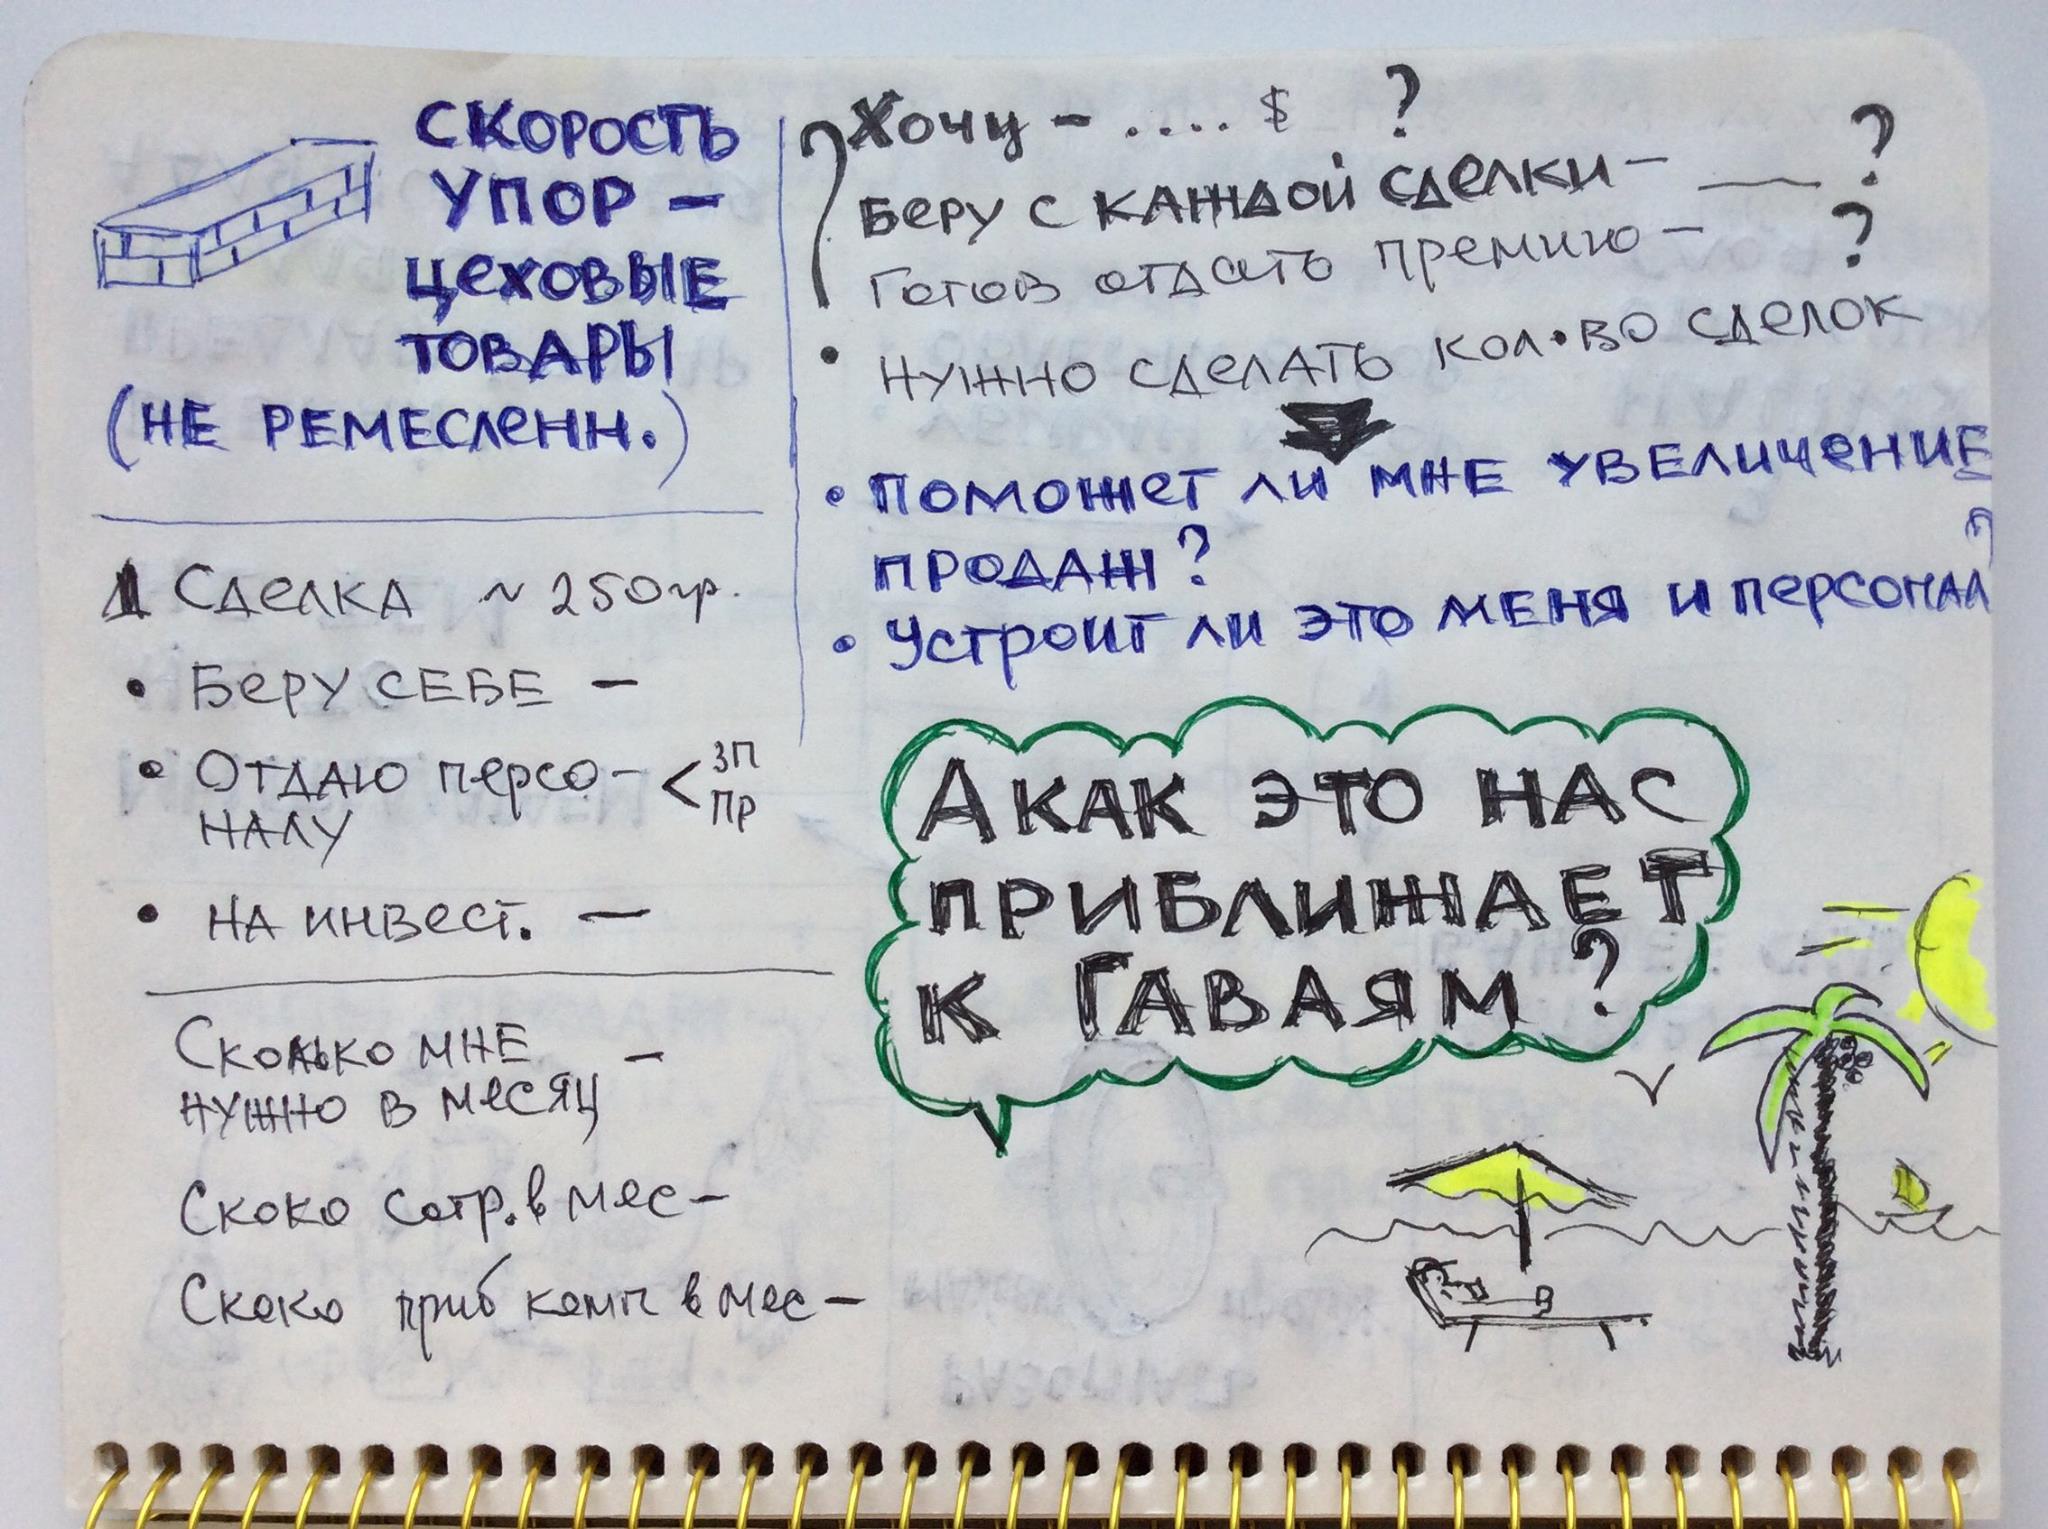 СКОРОСТЬ
УПОР –
ЦЕХОВЫЕ
ТОВАРЫ
(НЕ РЕМЕСЛЕНН.)
1 СДЕЛКА ~ 250 гр.
• БЕРУ СЕБЕ –
• ОТДАЮ ПЕРСО- < ЗП
НАЛУ ПР
• НА ИНВЕСТ. –
СКОЛЬКО МНЕ –
НУЖНО В МЕСЯЦ
Скоко сотр. в мес –
Скоко приб комп в мес –
? Хочу – .... $ ?
БЕРУ С КАЖДОЙ СДЕЛКИ – ___ ?
Готов отдать премию – ?
• НУЖНО СДЕЛАТЬ КОЛ-ВО СДЕЛОК
• ПОМОЖЕТ ЛИ МНЕ УВЕЛИЧЕНИЕ
ПРОДАЖ?
• УСТРОИТ ЛИ ЭТО МЕНЯ И ПЕРСОНАЛ ?
А КАК ЭТО НАС
ПРИБЛИЖАЕТ
К ГАВАЯМ?